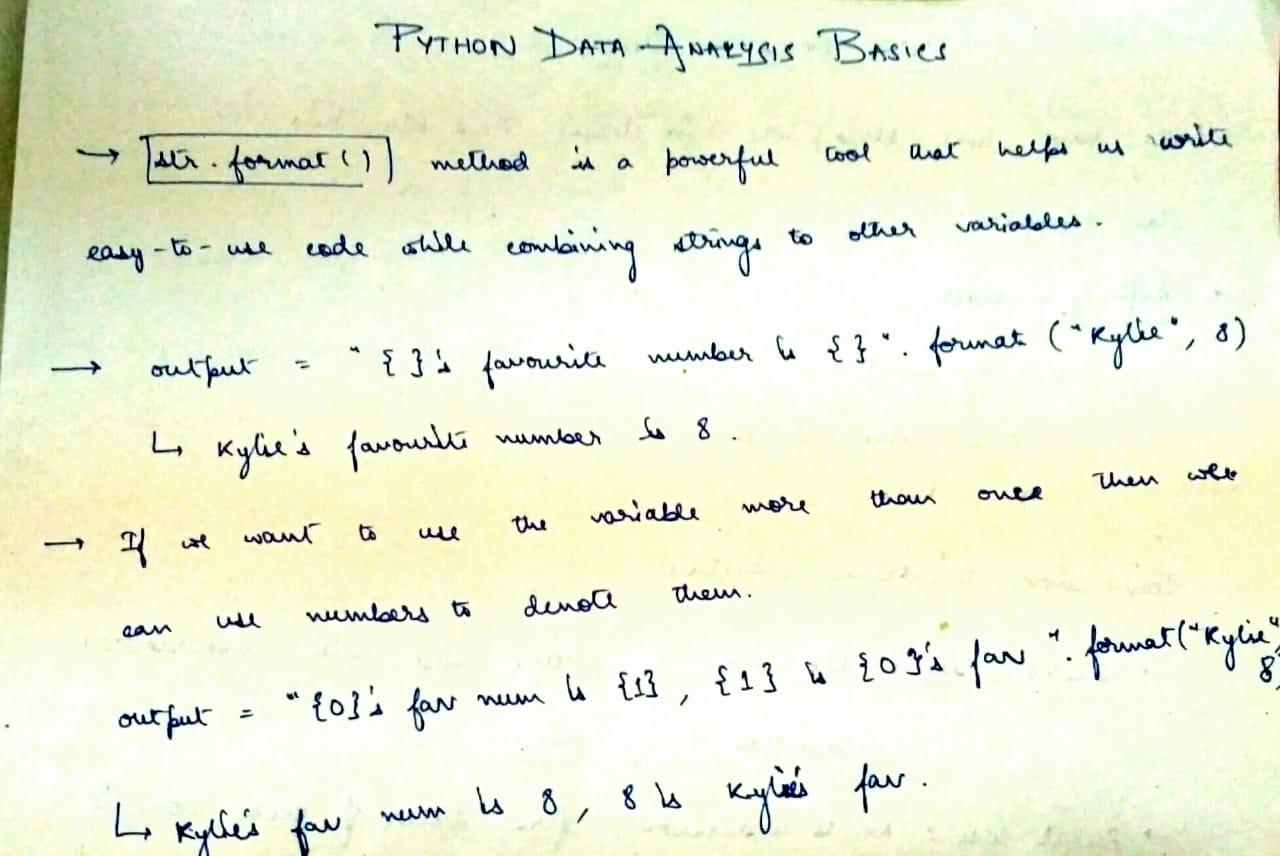 PYTHON DATA ANALYSIS BASICS
→ str.format() method is a powerful tool that helps us write
easy-to-use code while combining strings to other variables.
→ output = "{}'s favourite number is {}".format("Kylie", 8)
↳ Kylie's favourite number is 8.
→ If we want to use the variable more than once then we
can use numbers to denote them.
output = "{0}'s fav num is {1}, {1} is {0}'s fav".format("Kylie",
8)
↳ Kylie's fav num is 8, 8 is Kylie's fav.